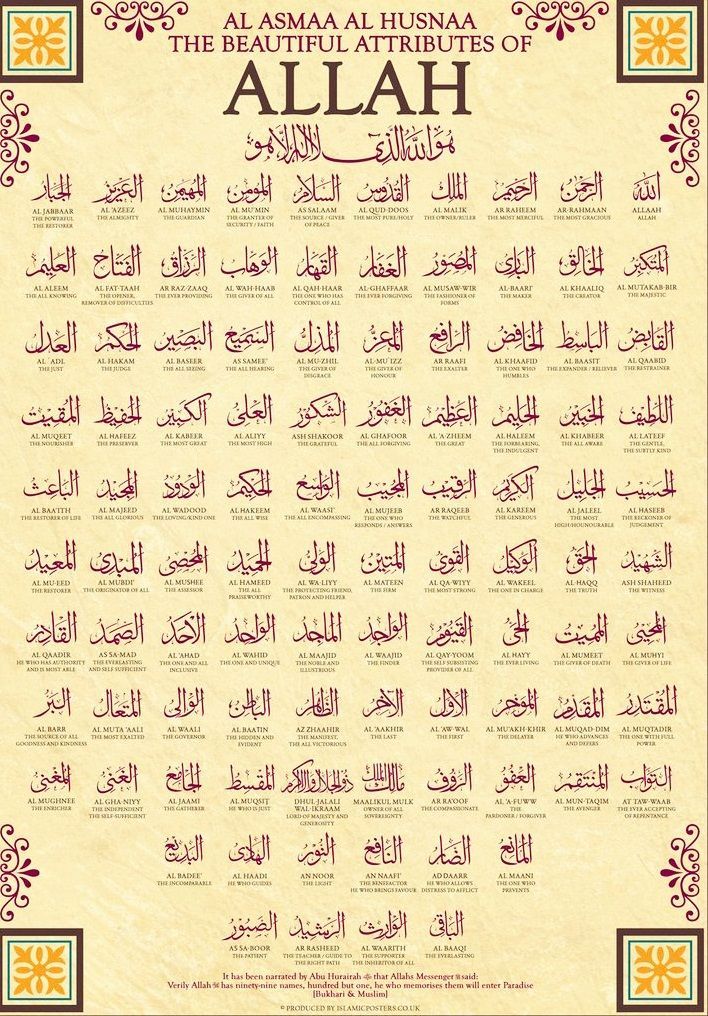 AL ASMAA AL HUSNAA
THE BEAUTIFUL ATTRIBUTES OF
ALLAH
هو الله الذي لا إله إلا هو
الله
ALLAAH
ALLAH
الرحمن
AR-RAHMAAN
THE MOST GRACIOUS
الرحيم
AR RAHEEM
THE MOST MERCIFUL
الملك
AL MALIK
THE OWNER/RULER
القدوس
AL QUD-DOOS
THE MOST PURE/HOLY
السلام
AS SALAAM
THE SOURCE / GIVER
OF PEACE
المومن
AL MU'MIN
THE GRANTER OF
SECURITY / FAITH
المهيمن
AL MUHAYMIN
THE GUARDIAN
العزيز
AL 'AZEEZ
THE ALMIGHTY
الجبار
AL JABBAAR
THE POWERFUL
THE RESTORER
المتكبر
AL MUTAKAB-BIR
THE MAJESTIC
الخالق
AL KHAALIQ
THE CREATOR
الباري
AL-BAARI'
THE MAKER
المصور
AL MUSAW-WIR'
THE FASHIONER OF
FORMS
الغفار
AL-GHAFFAAR
THE EVER FORGIVING
القهار
AL QAH-HAAR
THE ONE WHO HAS
CONTROL OF ALL
الوهاب
AL WAH-HAAB
THE GIVER OF ALL
الرزاق
AR RAZ-ZAAQ
THE EVER PROVIDING
الفتاح
AL FAT-TAAH
THE OPENER,
REMOVER OF DIFFICULTIES
العليم
AL ALEEM
THE ALL KNOWING
القابض
AL QAABID
THE RESTRAINER
الباسط
AL BAASIT
THE EXPANDER / RELIEVER
الخافض
AL KHAAFID
THE ONE WHO
HUMBLES
الرافع
AR RAAFI
THE EXALTER
المعز
AL-MU'IZZ
THE GIVER OF
HONOUR
المذل
AL MU-ZHIL
THE GIVER OF
DISGRACE
السميع
AS SAMEE'
THE ALL HEARING
البصير
AL BASEER
THE ALL SEEING
الحكم
AL HAKAM
THE JUDGE
العدل
AL 'ADL
THE JUST
اللطيف
AL-LATEEF
THE GENTLE,
THE SUBTLY KIND
الخبير
AL KHABEER
THE ALL AWARE
الحليم
AL HALEEM
THE FORBEARING,
THE INDULGENT
العظيم
AL 'A'ZHEEM
THE GREAT
الغفور
AL GHAFOOR
THE ALL FORGIVING
الشكور
ASH SHAKOOR
THE GRATEFUL
العلي
AL ALIYY
THE MOST HIGH
الكبير
AL KABEER
THE MOST GREAT
الحفيظ
AL HAFEEZ
THE PRESERVER
المقيت
AL MUQEET
THE NOURISHER
الحسيب
AL HASEEB
THE RECKONER OF
JUDGEMENT
الجليل
AL JALEEL
THE MOST
HIGH/HOUNOURABLE
الكريم
AL KAREEM
THE GENEROUS
الرقيب
AR RAQEEB
THE WATCHFUL
المجيب
AL MUJEEB
THE ONE WHO
RESPONDS / ANSWERS
الواسع
AL WAASI'
THE ALL ENCOMPASSING
الحكيم
AL HAKEEM
THE ALL WISE
الودود
AL WADOOD
THE LOVING/KIND ONE
المجيد
AL MAJEED
THE ALL GLORIOUS
الباعث
AL BAA'ITH
THE RESTORER OF LIFE
الشهيد
ASH SHAHEED
THE WITNESS
الحق
AL-HAQQ
THE TRUTH
الوكيل
AL WAKEEL
THE ONE IN CHARGE
القوي
AL QA-WIYY
THE MOST STRONG
المتين
AL MATEEN
THE FIRM
الولي
AL WA-LIYY
THE PROTECTING FRIEND,
PATRON AND HELPER
الحميد
AL HAMEED
THE ALL
PRAISEWORTHY
المحصي
AL MUSHEE
THE ASSESSOR
المبدي
AL MUBDI'
THE ORIGINATOR OF ALL
المعيد
AL MU-EED
THE RESTORER
المحيي
AL MUHYI
THE GIVER OF LIFE
المميت
AL MUMEET
THE GIVER OF DEATH
الحي
AL HAYY
THE EVER LIVING
القيوم
AL QAY-YOOM
THE SELF SUBSISTING
PROVIDER OF ALL
الواجد
AL WAAJID
THE FINDER
الماجد
AL MAAJID
THE NOBLE AND
ILLUSTRIOUS
الواحد
AL WAHID
THE ONE AND UNIQUE
الأحد
AL 'AHAD
THE ONE AND ALL
INCLUSIVE
الصمد
AS SA-MAD
THE EVERLASTING
AND SELF SUFFICIENT
القادر
AL QAADIR
HE WHO HAS AUTHORITY
AND IS MOST ABLE
المقتدر
AL MUQTADIR
THE ONE WITH FULL
POWER
المقدم
AL MUQAD-DIM
HE WHO ADVANCES
AND DEFERS
الموخر
AL MU'AKH-KHIR
THE DELAYER
الأول
AL 'AW-WAL
THE FIRST
الآخر
AL 'AAKHIR
THE LAST
الظاهر
AZ ZHAAHIR
THE MANIFEST,
THE ALL VICTORIOUS
الباطن
AL BAATIN
THE HIDDEN AND
EVIDENT
الوالي
AL WAALI
THE GOVERNOR
المتعال
AL MUTA 'AALI
THE MOST EXALTED
البر
AL BARR
THE SOURCE OF ALL
GOODNESS AND KINDNESS
التواب
AT TAW-WAAB
THE EVER ACCEPTING
OF REPENTANCE
المنتقم
AL MUN-TAQIM
THE AVENGER
العفو
AL 'A-FUWW
THE
PARDONER / FORGIVER
الرؤوف
AR RA'OOF
THE COMPASSIONATE
مالك الملك
MAALIKUL MULK
OWNER OF ALL
SOVEREIGNTY
ذو الجلال والإكرام
DHUL-JALALI
WAL-IKRAAM
LORD OF MAJESTY AND
GENEROSITY
المقسط
AL MUQSIT
HE WHO IS JUST
الجامع
AL JAAMI
THE GATHERER
الغني
AL GHA-NIYY
THE INDEPENDENT
THE SELF-SUFFICIENT
المغني
AL MUGHNEE
THE ENRICHER
المانع
AL MAANI
THE ONE WHO
PREVENTS
الضار
AD DAARR
HE WHO ALLOWS
DISTRESS TO AFFLICT
النافع
AN NAAFI'
THE BENEFACTOR
HE WHO BRINGS FAVOUR
النور
AN NOOR
THE LIGHT
الهادي
AL HAADI
HE WHO GUIDES
البديع
AL BADEE'
THE INCOMPARABLE
الباقي
AL BAAQI
THE EVERLASTING
الوارث
AL WAARITH
THE SUPPORTER
THE INHERITOR OF ALL
الرشيد
AR RASHEED
THE TEACHER / GUIDE TO
THE RIGHT PATH
الصبور
AS SA-BOOR
THE PATIENT
It has been narrated by Abu Hurairah that Allahs Messenger said:
Verily Allah has ninety-nine names, hundred but one, he who memorises them will enter Paradise
[Bukhari & Muslim]
© PRODUCED BY ISLAMICPOSTERS.CO.UK